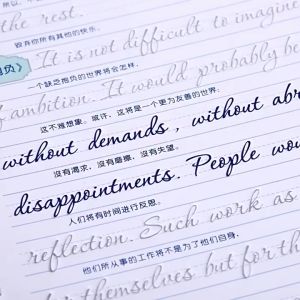 the rest.
毁弃你所有其他的快乐。
It is not difficult to imagine
一个缺乏抱负的世界将会怎样,
of ambition. It would probably be
这不难想象。或许,这将是一个更为友善的世界:
without demands , without abr
没有渴求,没有磨擦,没有失望。
disappointments. People wou
人们将有时间进行反思。
reflection. Such work as
他们所从事的工作将不是为了他们自身,
for themselves but for th